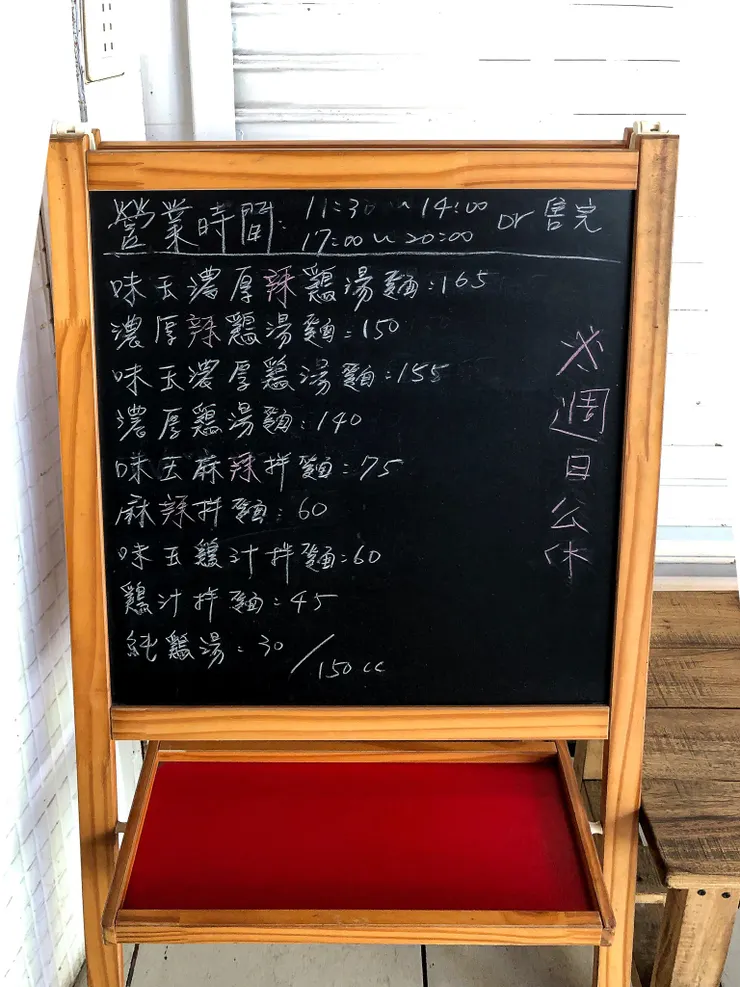 營業時間: 11:30~14:00 or 售完
17:00~20:00
味玉濃厚辣鷄湯麵:165
濃厚辣鷄湯麵:150
味玉濃厚鷄湯麵:155
濃厚鷄湯麵:140
味玉麻辣拌麵:75
麻辣拌麵:60
味玉鷄汁拌麵:60
鷄汁拌麵:45
純鷄湯:30/150cc
※週日公休